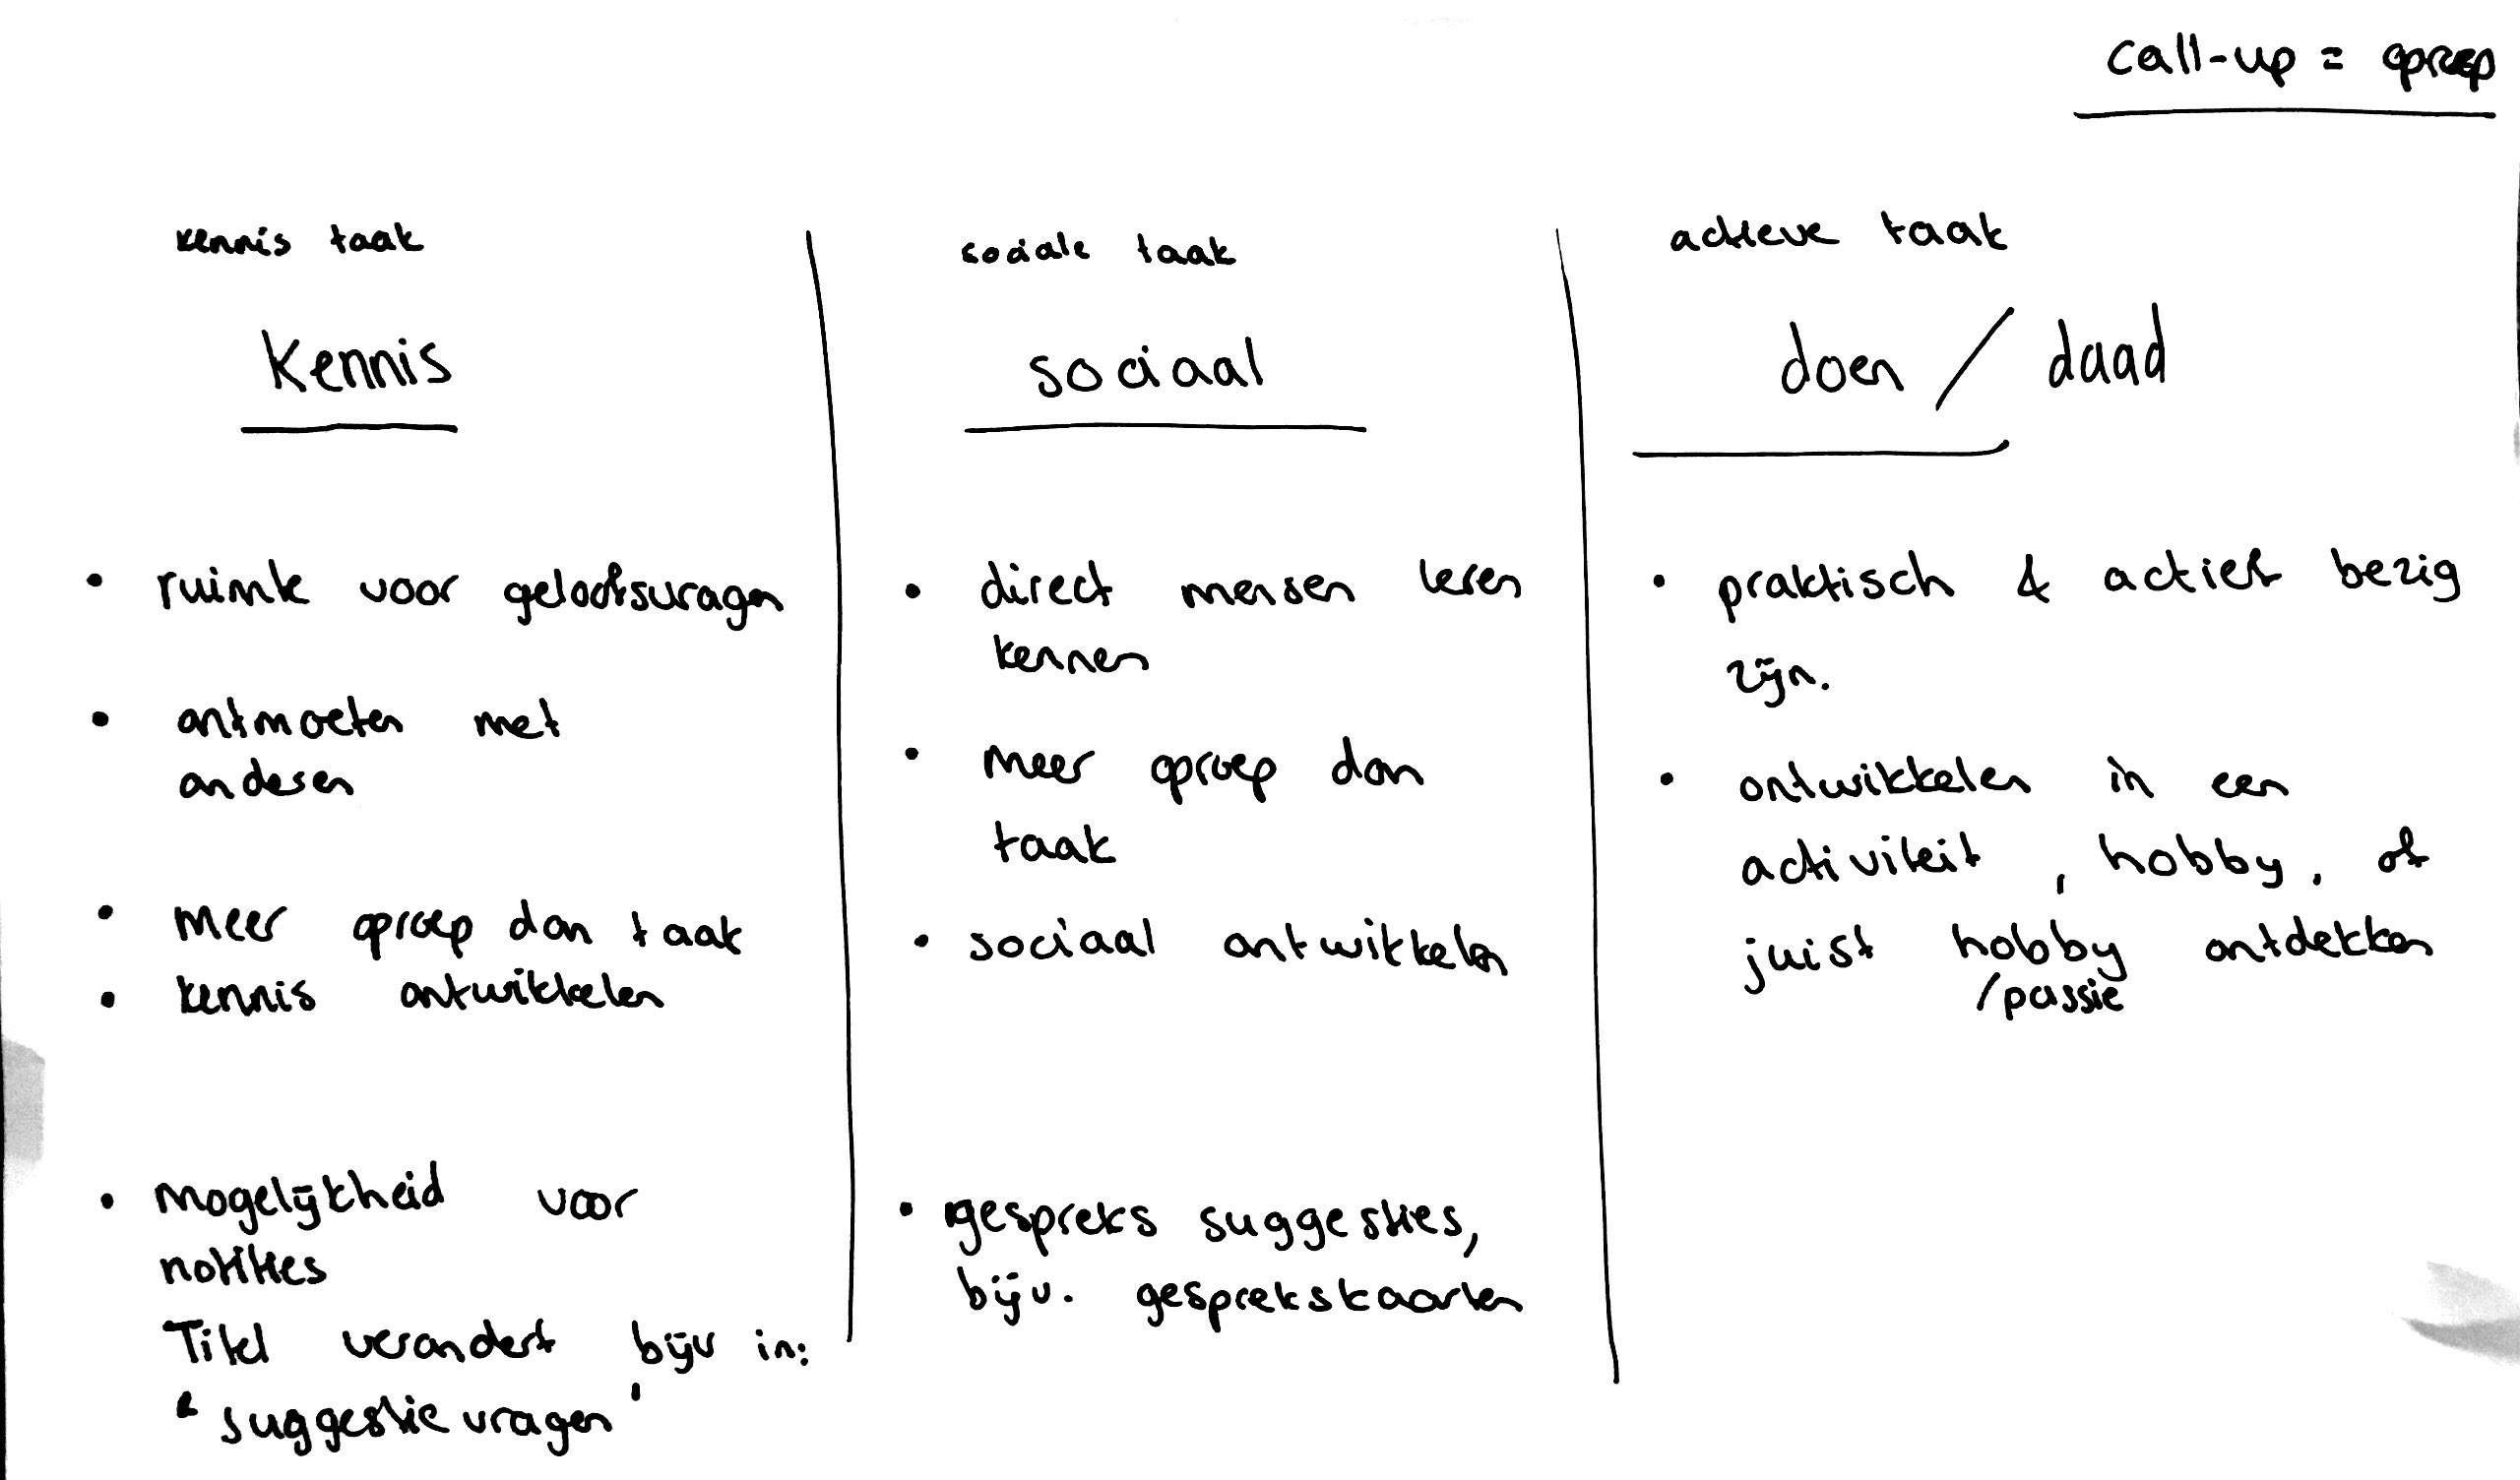 call-up = oproep
kennis taak
Kennis
• ruimte voor geloofsvragen
• ontmoeten met
anderen
• meer oproep dan taak
• kennis ontwikkelen
• mogelijkheid voor
notities
Titel verandert bijv in:
‘suggestie vragen’
sociale taak
sociaal
• direct mensen leren
kennen
• meer oproep dan
taak
• sociaal ontwikkelen
• gespreks suggesties,
bijv. gesprekskaarten
actieve taak
doen / daad
• praktisch & actief bezig
zijn.
• ontwikkelen in een
activiteit, hobby, of
juist hobby ontdekken
/passie